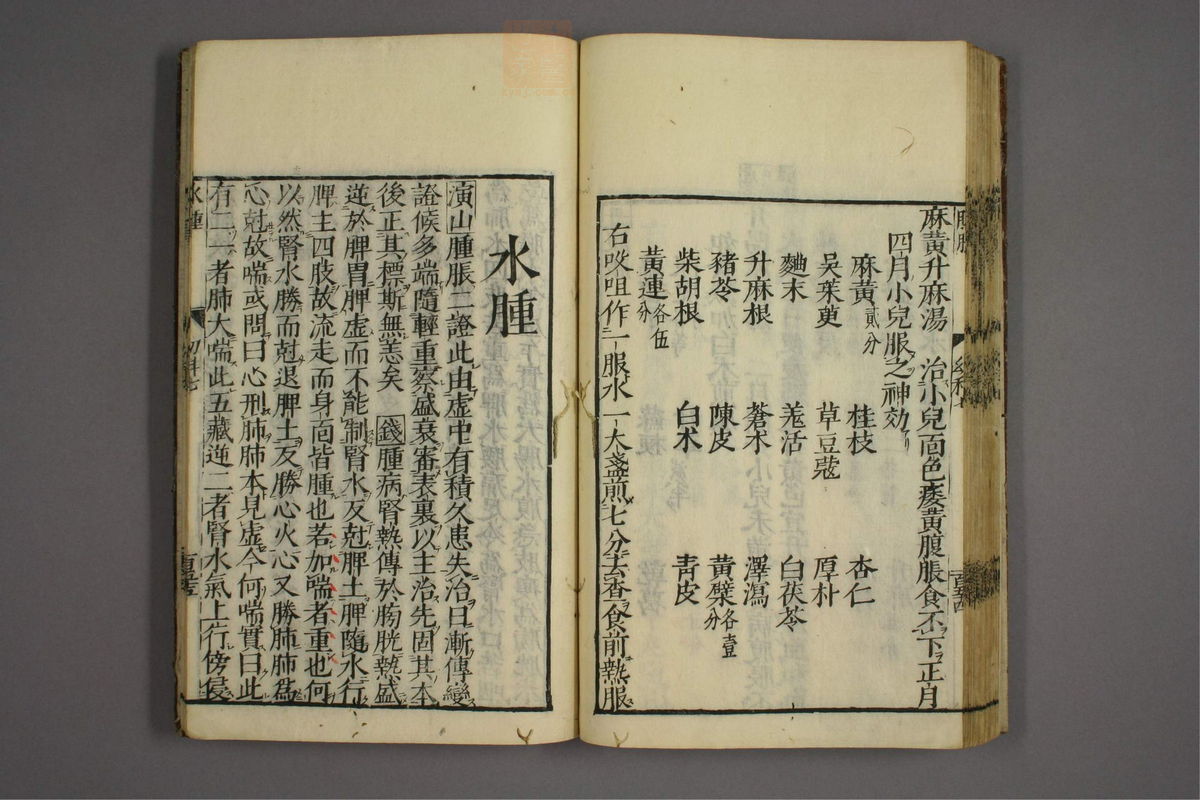 麻黄升麻湯 治小兒面色痿黃腹脹食不下正月
四月小兒服之神效
麻黄貳分 桂枝 杏仁
吳茱萸 草豆蔻 厚朴
麯末 羌活 白茯苓
升麻根 蒼朮 澤瀉
豬苓 陳皮 黃檗各壹分
柴胡根 白朮 青皮
黃連各伍分
右㕮咀作一服水一大盞煎七分去查食前熱服
水腫
演山腫脹二證此由虚中有積久患失治日漸傳變
證候多端隨輕重察盛衰審表裏以主治先固其本
後正其標斯無恙矣 錢腫病腎熱傳於膀胱熱盛
逆於脾胃脾虚而不能制腎水反尅脾土脾隨水行
脾主四肢故流走而身面皆腫也若加喘者重也何
以然腎水勝而尅退脾土反勝心火心又勝肺肺爲
心尅故喘或問曰心刑肺肺本見虚今何喘實曰此
有二一者肺大喘此五藏逆二者腎水氣上行傍侵
水腫